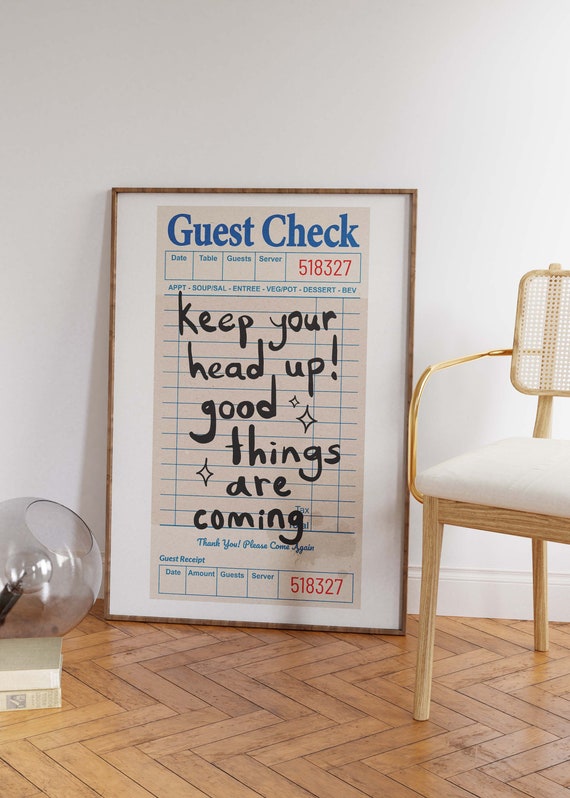 Guest Check
Date Table Guests Server 518327
APPT - SOUP/SAL - ENTREE - VEG/POT - DESSERT - BEV
keep your
head up!
good
things
are
coming
Tax
Thank You! Please Come Again
Guest Receipt
Date Amount Guests Server 518327